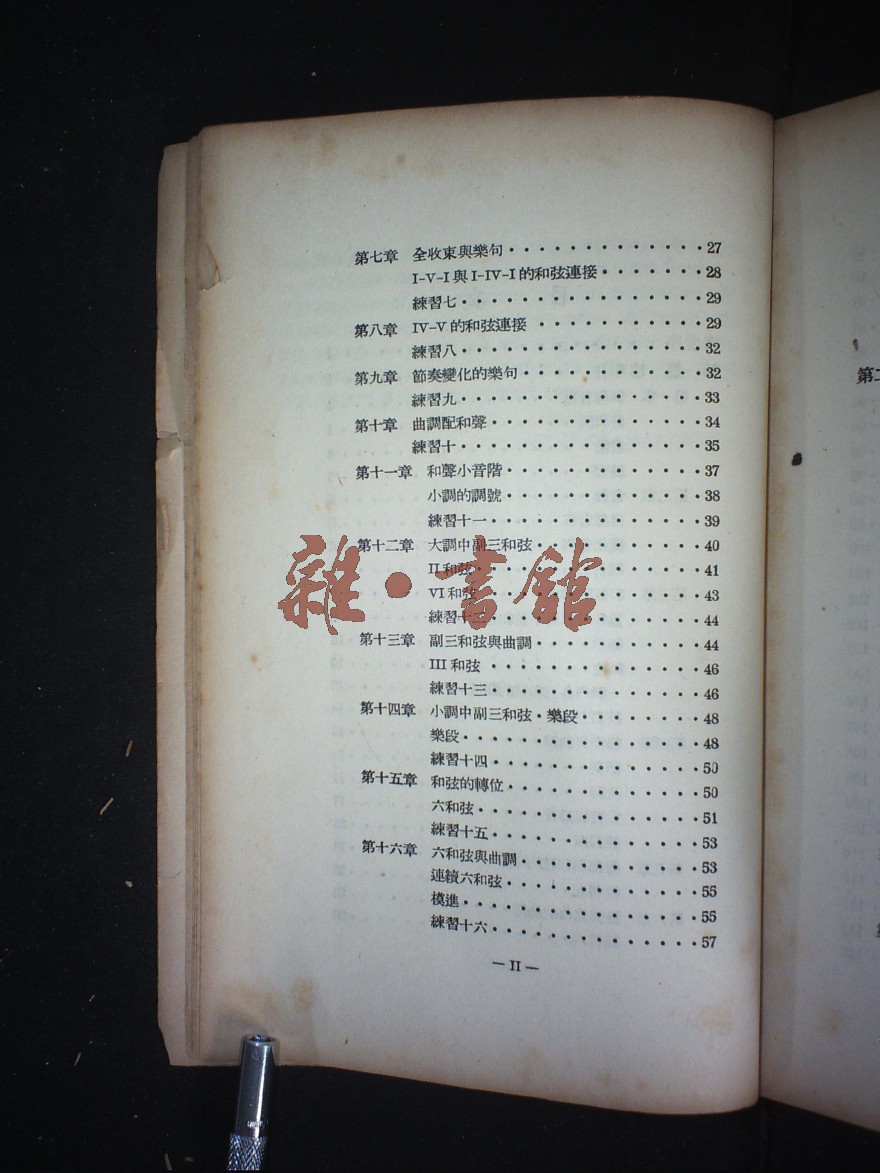 第七章 全收束與樂句··············27
I-V-I與I-IV-I的和弦連接·······28
練習七·················29
第八章 IV-V的和弦連接 ············29
練習八·················32
第九章 節奏變化的樂句·············32
練習九·················33
第十章 曲調配和聲···············34
練習十·················35
第十一章 和聲小音階··············37
小調的調號··············38
練習十一···············39
第十二章 大調中副三和弦············40
II和弦················41
VI和弦················43
練習十二···············44
第十三章 副三和弦與曲調············44
III和弦···············46
練習十三···············46
第十四章 小調中副三和弦·樂段········48
樂段·················48
練習十四···············50
第十五章 和弦的轉位··············50
六和弦················51
練習十五···············53
第十六章 六和弦與曲調·············53
連續六和弦··············55
模進·················55
練習十六···············57
— II —
雜·書館